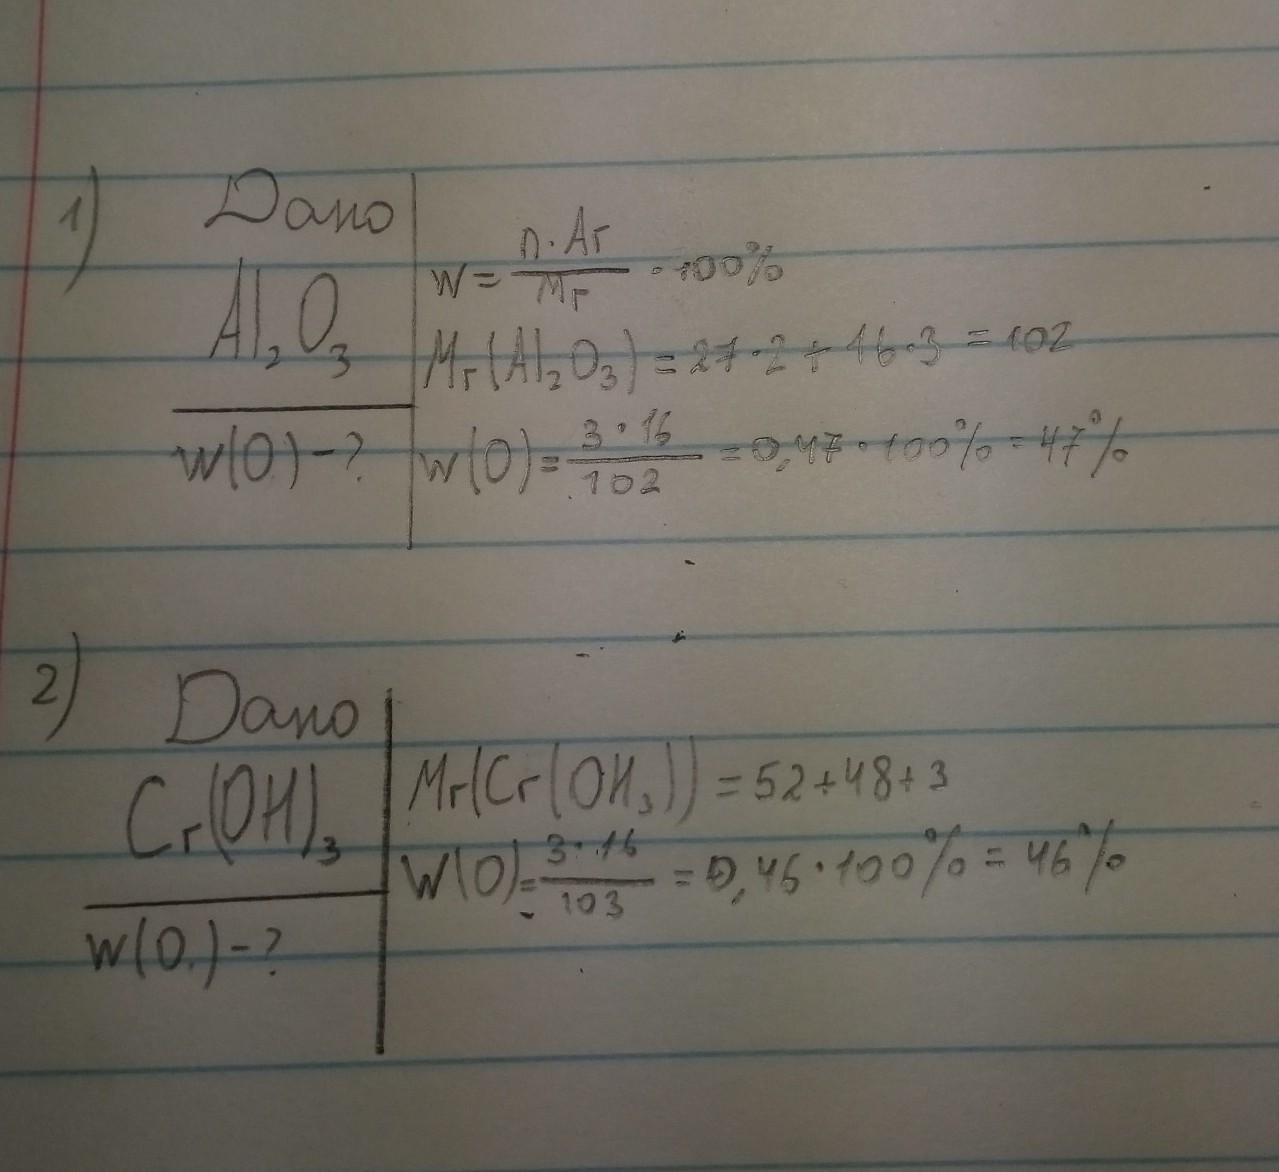 1) Дано
Al₂O₃
w(O) - ?
w = n · Ar / Mr · 100%
Mr(Al₂O₃) = 27 · 2 + 16 · 3 = 102
w(O) = 3 · 16 / 102 = 0,47 · 100% = 47%
2) Дано
Cr(OH)₃
w(O) - ?
Mr(Cr(OH₃)) = 52 + 48 + 3
W(O) = 3 · 16 / 103 = 0,46 · 100% = 46%